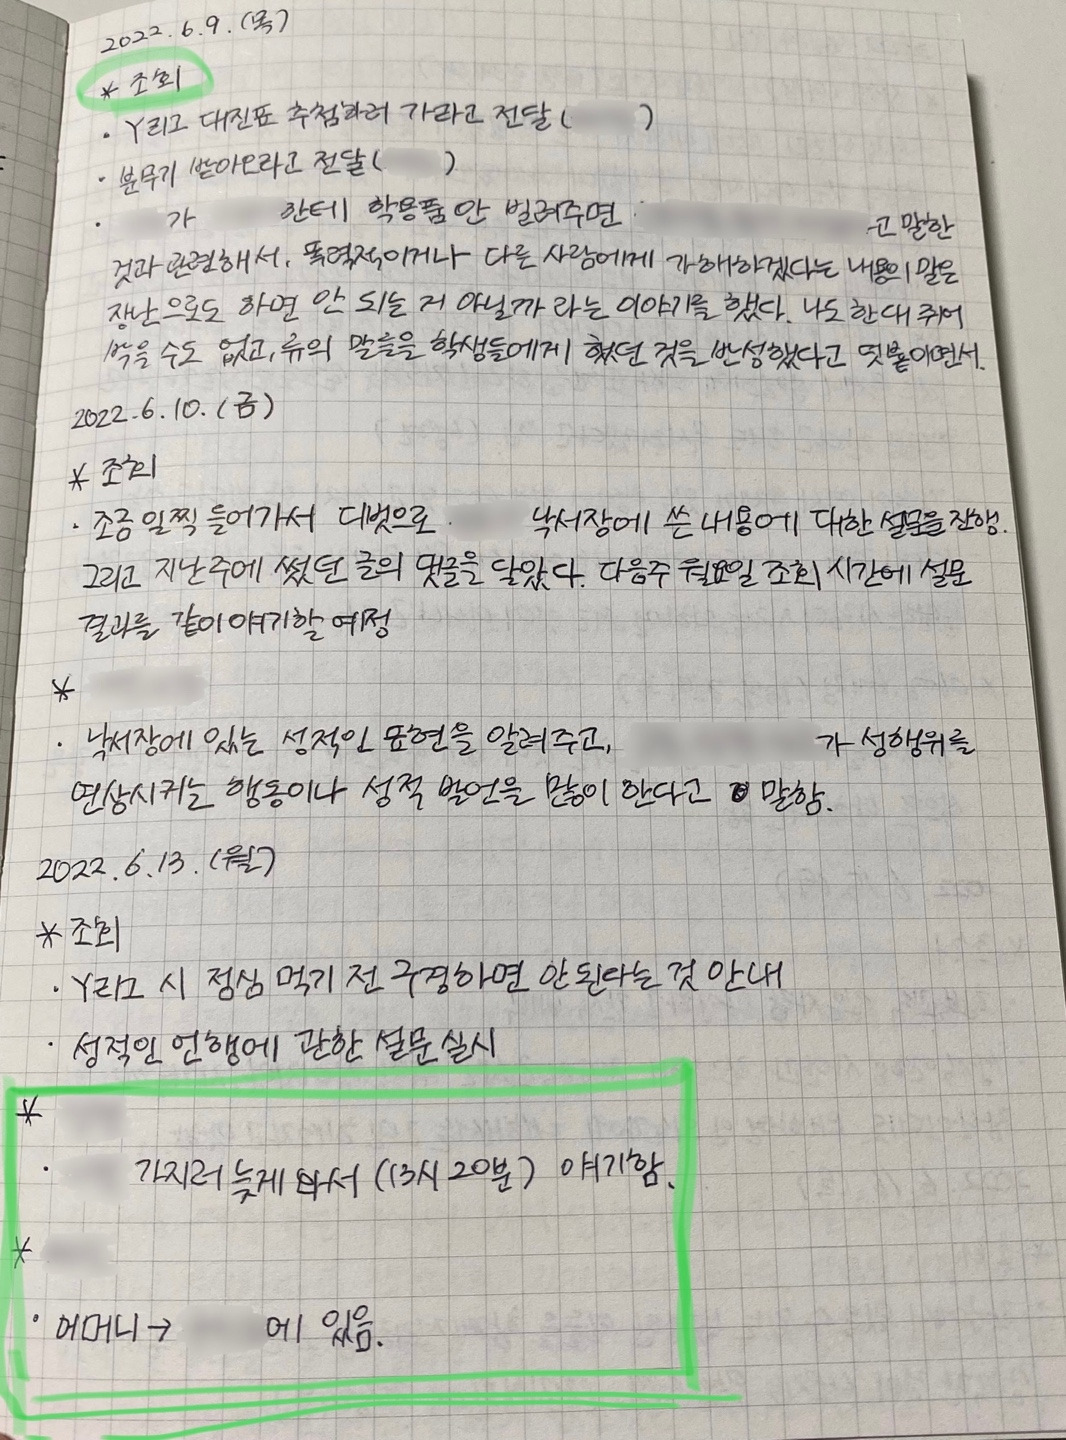 2022. 6. 9. (목)
* 조회
· Y리그 대진표 추첨하러 가라고 전달 ( )
· 분무기 받아오라고 전달 ( )
· 가 한테 학용품 안 빌려주면 고 말한
것과 관련해서, 폭력적이거나 다른 사람에게 가해하겠다는 내용의 말은
장난으로도 하면 안 되는 거 아닐까 라는 이야기를 했다. 나도 한 대 쥐어
박을 수도 없고, 류의 말들을 학생들에게 했던 것을 반성했다고 덧붙이면서.
2022. 6. 10. (금)
* 조회
· 조금 일찍 들어가서 디벗으로 낙서장에 쓴 내용에 대한 설문을 진행.
그리고 지난주에 썼던 글의 댓글을 달았다. 다음주 월요일 조회 시간에 설문
결과를 같이 얘기할 예정
*
· 낙서장에 있는 성적인 표현을 알려주고, 가 성행위를
연상시키는 행동이나 성적 발언을 많이 한다고 말함.
2022. 6. 13. (월)
* 조회
· Y리그 시 점심 먹기 전 구경하면 안된다는 것 안내
· 성적인 언행에 관한 설문 실시
*
· 가지러 늦게 와서 (13시 20분) 얘기함.
*
· 어머니 → 에 있음.